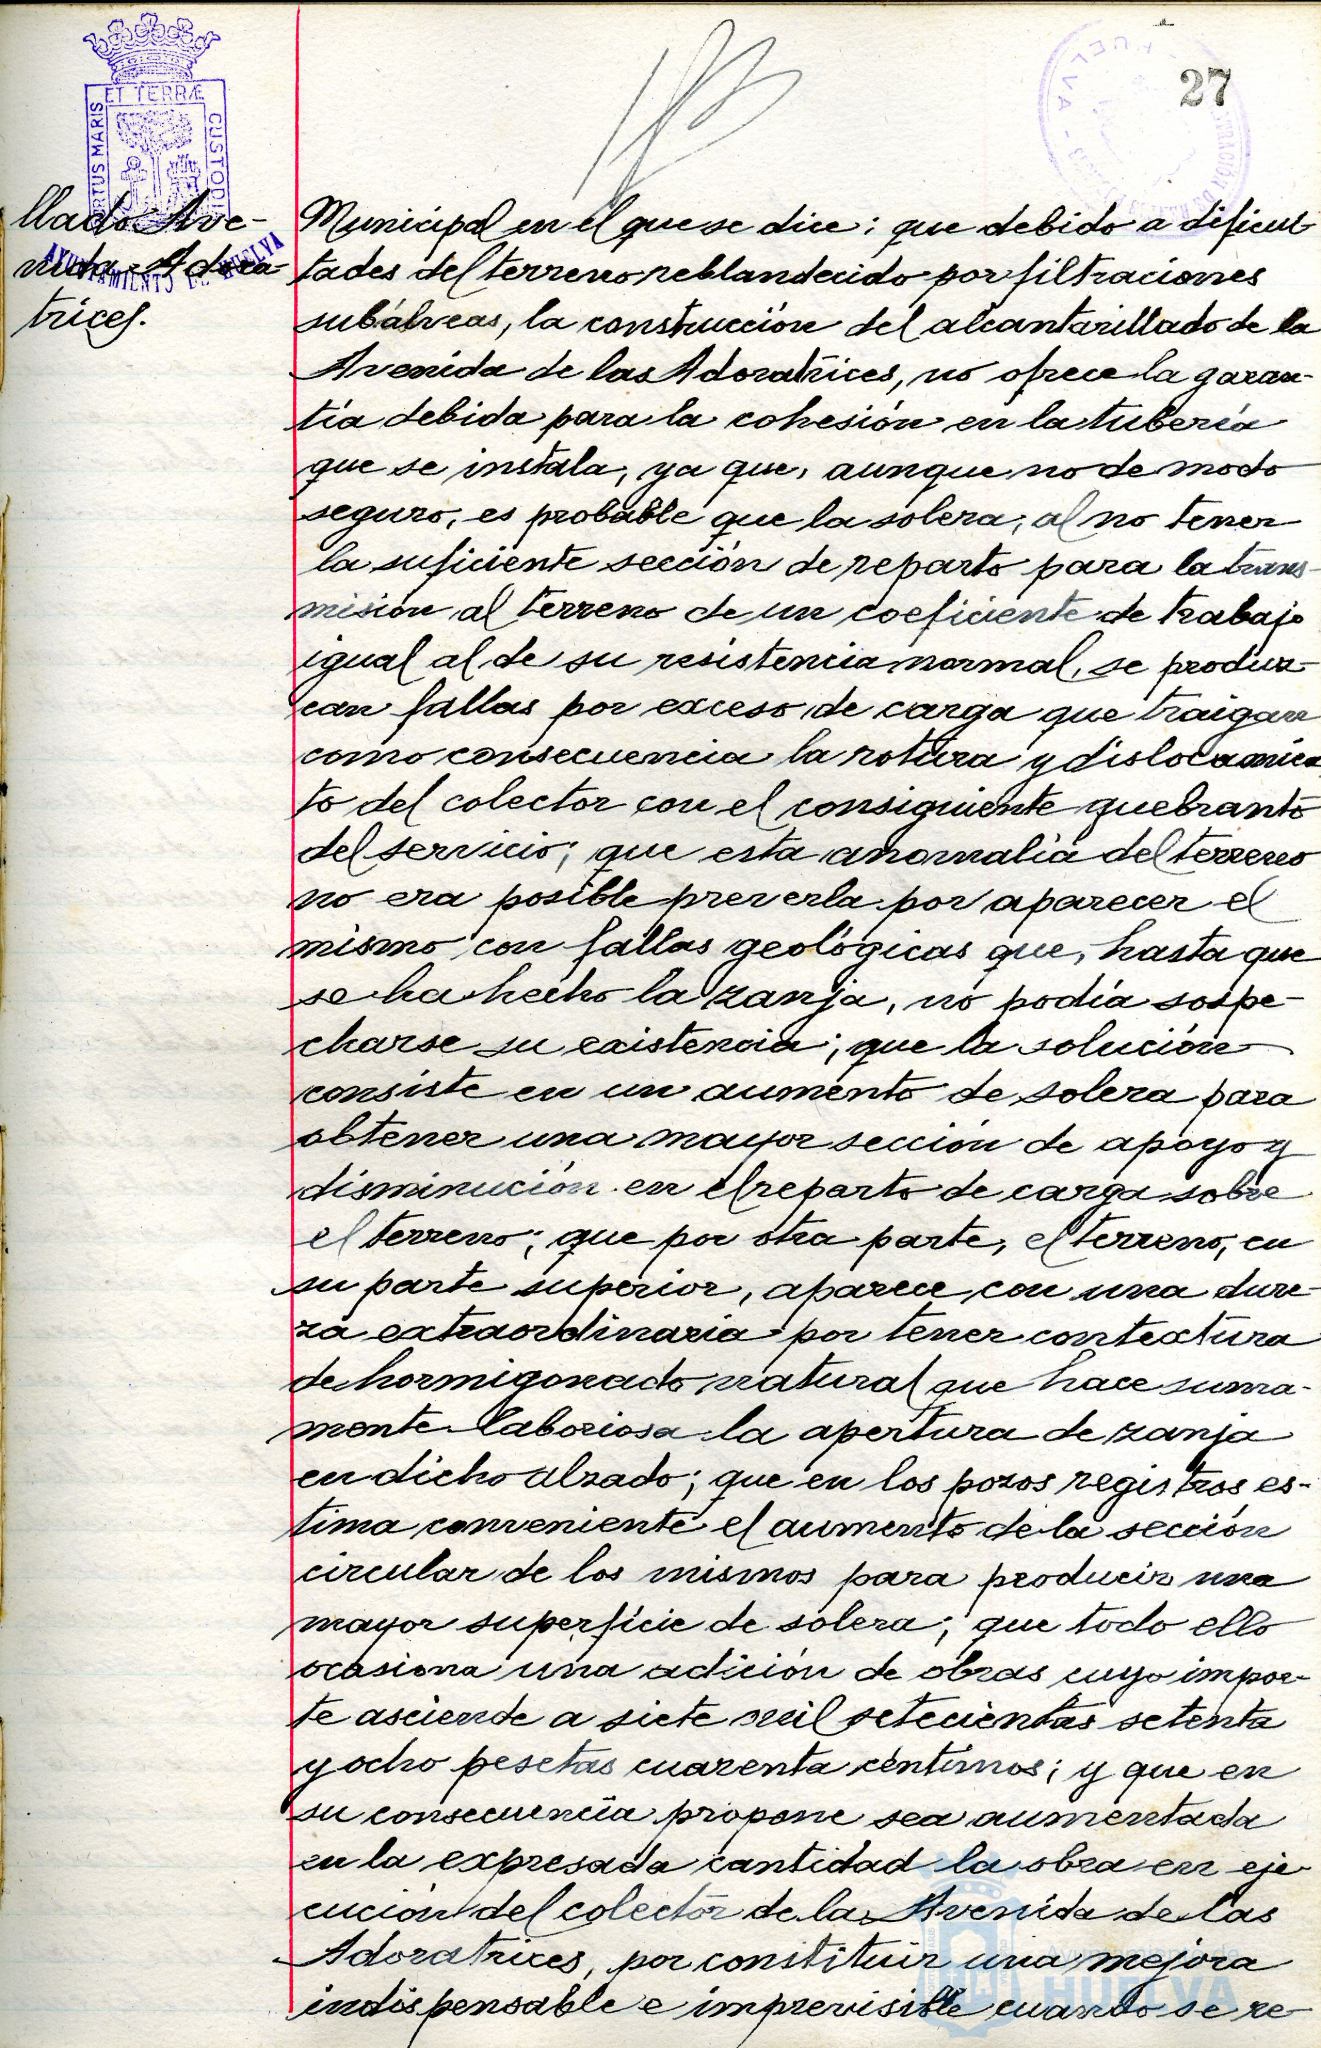 27
PORTUS MARIS
ET TERRÆ
CUSTODI
AYUNTAMIENTO DE HUELVA
HUELVA
llado Ave-
nida Adora-
trices.
Municipal en el que se dice: que debido a dificul-
tades del terreno reblandecido por filtraciones
subálveas, la construcción del alcantarillado de la
Avenida de las Adoratrices, no ofrece la garan-
tía debida para la cohesión en la tubería
que se instala, ya que, aunque no de modo
seguro, es probable que la solera, al no tener
la suficiente sección de reparto para la trans-
misión al terreno de un coeficiente de trabajo
igual al de su resistencia normal, se produz-
can fallas por exceso de carga que traigan
como consecuencia la rotura y dislocamien
to del colector con el consiguiente quebranto
del servicio; que esta anomalía del terreno
no era posible preverla por aparecer el
mismo con fallas geológicas que, hasta que
se ha hecho la zanja, no podía sospe-
charse su existencia; que la solución
consiste en un aumento de solera para
obtener una mayor sección de apoyo y
disminución en el reparto de carga sobre
el terreno; que por otra parte, el terreno, en
su parte superior, aparece con una dure-
za extraordinaria por tener contextura
de hormigonado natural que hace suma-
mente laboriosa la apertura de zanja
en dicho alzado; que en los pozos registros es-
tima conveniente el aumento de la sección
circular de los mismos para producir una
mayor superficie de solera; que todo ello
ocasiona una adición de obras cuyo impor-
te asciende a siete mil setecientas setenta
y ocho pesetas cuarenta céntimos; y que en
su consecuencia propone sea aumentada
en la expresada cantidad la obra en eje-
cución del colector de la Avenida de las
Adoratrices, por constituir una mejora
indispensable e imprevisible cuando se re-
Ayuntamiento de
HUELVA